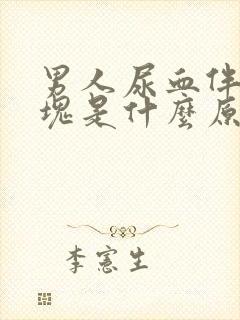 男人尿血伴
塊是什麼原
李憲生